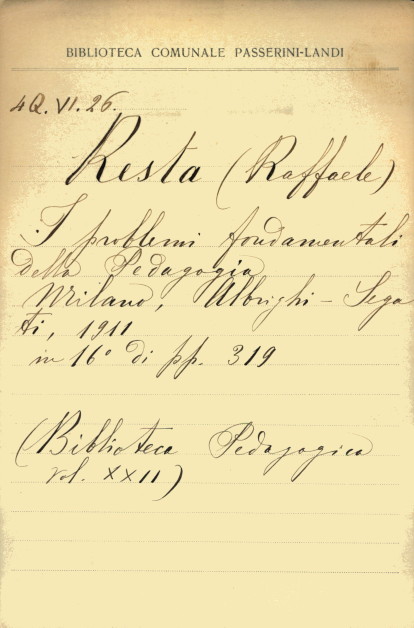 BIBLIOTECA COMUNALE PASSERINI-LANDI
4Q.VI.26.
Resta (Raffaele)
I problemi fondamentali
della Pedagogia
Milano, Albrighi-Sega
ti, 1911
in 16° di pp. 319
(Biblioteca Pedagogica
vol. XXII)